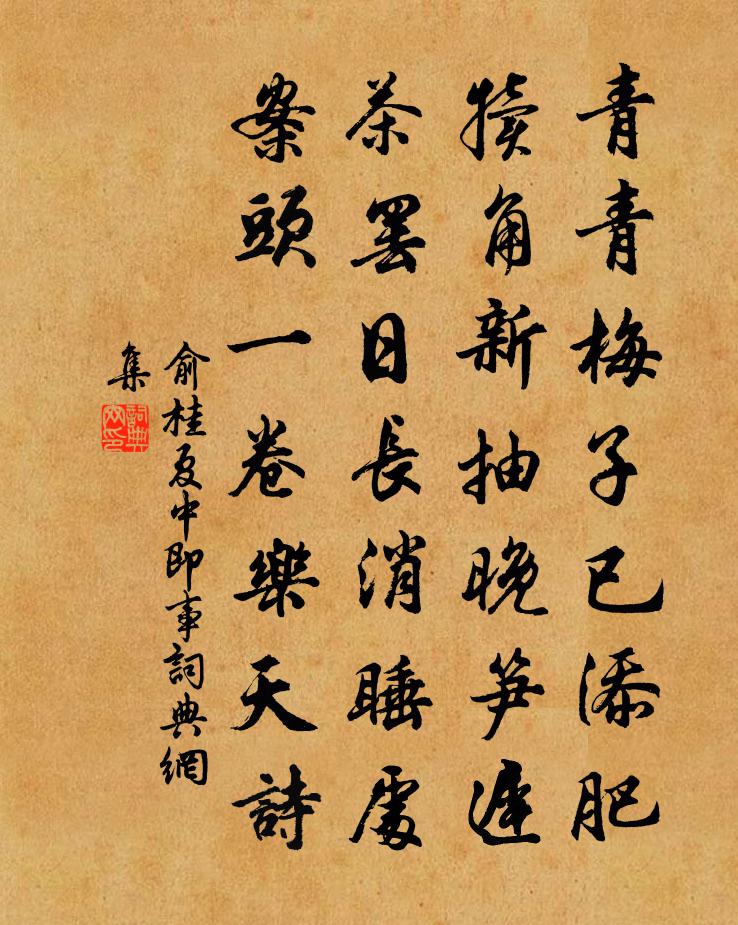 青青梅子已添肥
犢角新抽晚笋遲
茶罷日長消睡處
案頭一卷樂天詩
俞桂夏中即事詞典網
集
詞典
网印